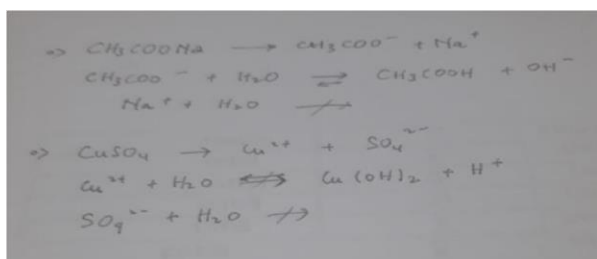 => CH3COONa → CH3COO⁻ + Na⁺
CH3COO⁻ + H2O ⇌ CH3COOH + OH⁻
Na⁺ + H2O ↛
=> CuSO4 → Cu²⁺ + SO4²⁻
Cu²⁺ + H2O ⇌ Cu(OH)2 + H⁺
SO4²⁻ + H2O ↛